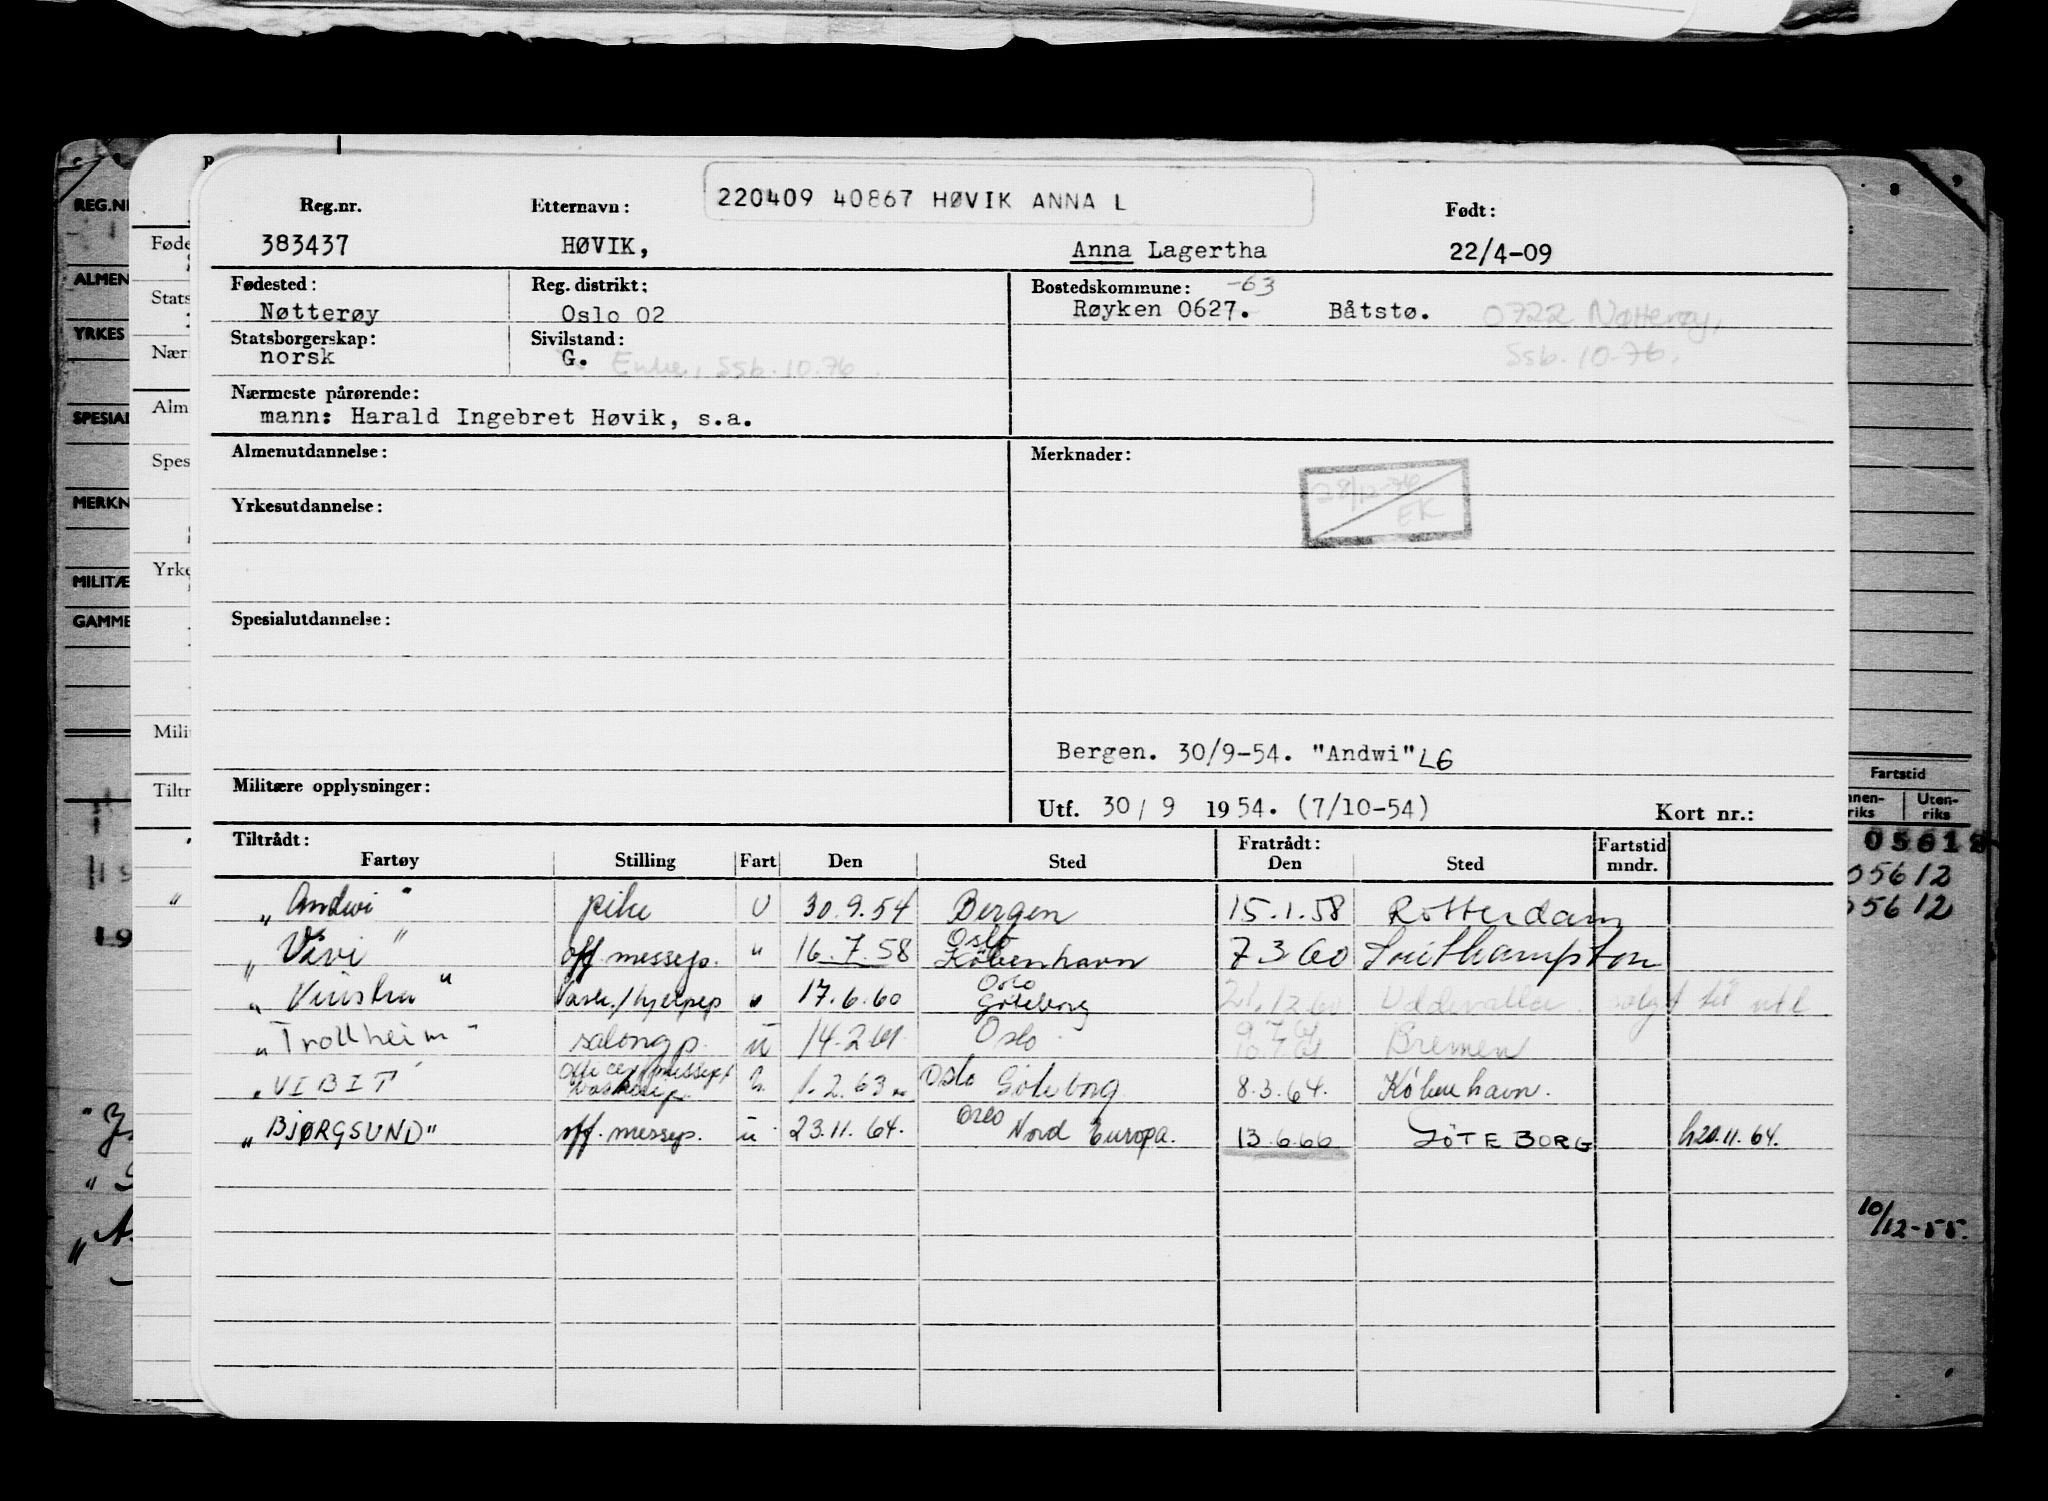 220409 40867 HØVIK ANNA L
Reg.nr. Etternavn: Født:
383437 HØVIK, Anna Lagertha 22/4-09
Fødested: Reg. distrikt: Bostedskommune: -63
Nøtterøy Oslo 02 Røyken 0627. Båtstø. 0722 Nøtterøy,
Statsborgerskap: Sivilstand: Ssb. 10-76.
norsk G. Enke, Ssb. 10.76.
Nærmeste pårørende:
mann: Harald Ingebret Høvik, s.a.
Almenutdannelse: Merknader:
28/12-76
EK
Yrkesutdannelse:
Spesialutdannelse:
Bergen. 30/9-54. "Andwi" LG
Militære opplysninger:
Utf. 30/9 1954. (7/10-54) Kort nr.:
Tiltrådt: Fratrådt: Fartstid
Fartøy Stilling Fart Den Sted Den Sted mndr.
„Andwi" pike U 30.9.54 Bergen 15.1.58 Rotterdam
„Vivi" off. messep. " 16.7.58 Oslo København 7 3 60 Southampton
„Vinstra" " 17.6.60 Oslo Göteborg 21.12.60 Uddevalla solgt til utl
„Trollheim" salongp. ü 14.2.61 Oslo 9.7.61 10.7.61 Bremen
„VIBIT" 1.2.63 Oslo Göteborg 8.3.64. København.
„BJØRGSUND" off. messep. ü 23.11.64. Oslo Nord Europa. 13.6.66 GÖTEBORG h20.11.64.
REG.NR
ALMEN
YRKES
SPESIAL
MERKN
MILITÆ
GAMME
Føde
Stats
Nær
Alm
Spes
Yrke
Mili
Tiltr
8 9
Fartstid
nnen-
riks Uten-
riks
05612
05612
10/12-55.